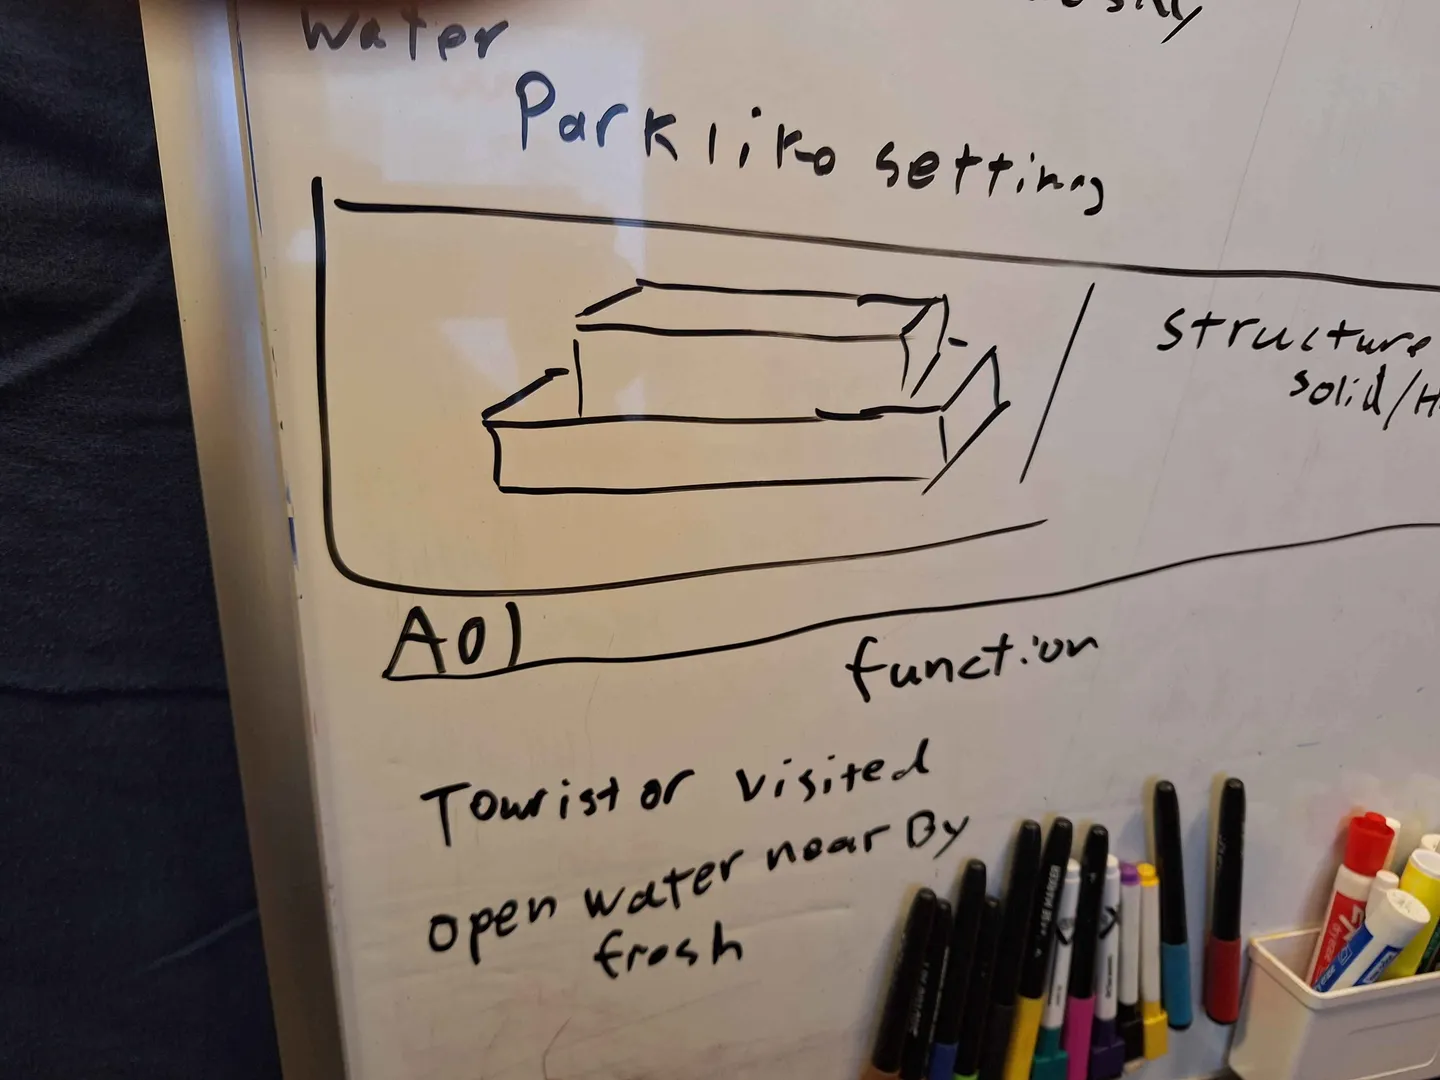 Water
Parklike setting
structure
solid/H
A01
function
Tourist or visited
open water near By
fresh